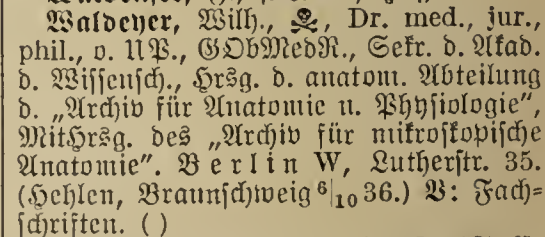 Waldeyer, Wilh., ☠, Dr. med., jur.,
phil., o. UP., GObMedR., Sekr. d. Akad.
d. Wissensch., Hrsg. d. anatom. Abteilung
d. „Archiv für Anatomie u. Physiologie",
MitHrsg. des „Archiv für mikroskopische
Anatomie". Berlin W, Lutherstr. 35.
(Hehlen, Braunschweig 6|10 36.) V: Fach=
schriften. ( )